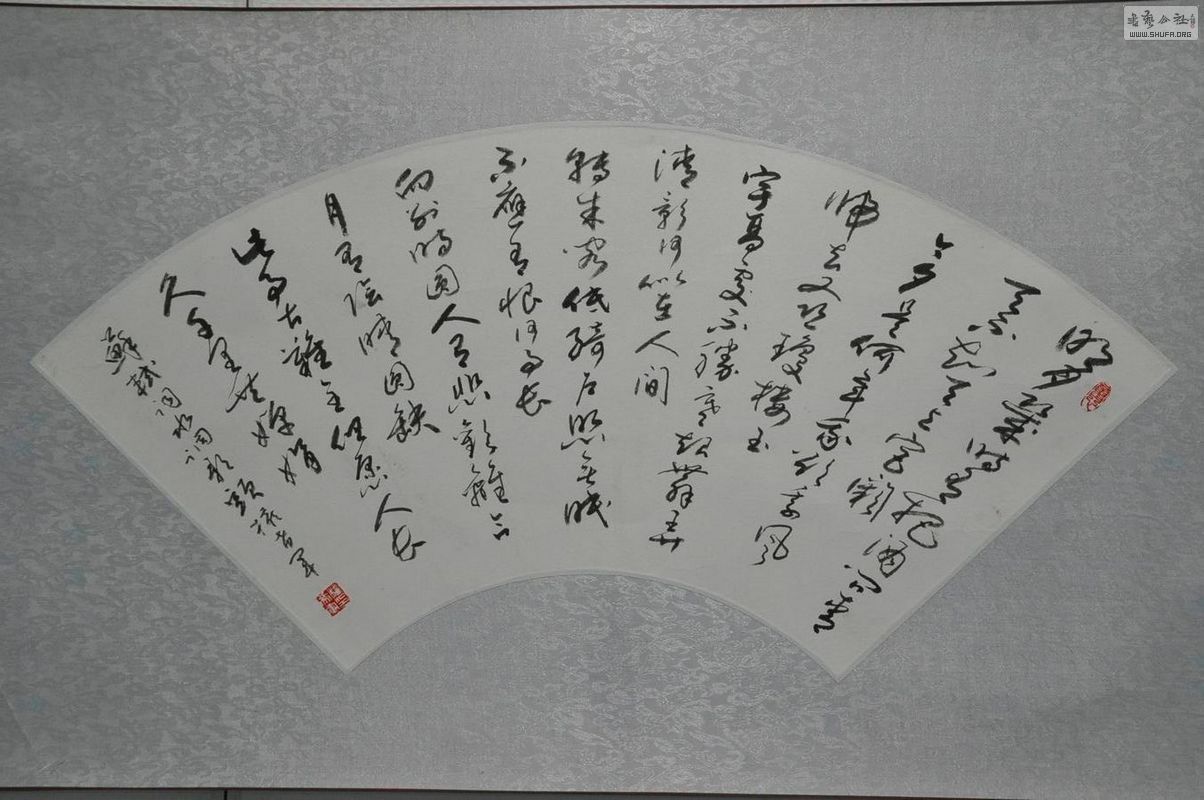 明月幾時有把酒問青
天不知天上宮闕
今夕是何年我欲乘風
歸去又恐瓊樓玉
宇高處不勝寒起舞弄
清影何似在人間
轉朱閣低綺戶照無眠
不應有恨何事長
向別時圓人有悲歡離合
月有陰晴圓缺
此事古難全但願人長
久千里共嬋娟
蘇軾詞水調歌頭
WWW.SHUFA.ORG